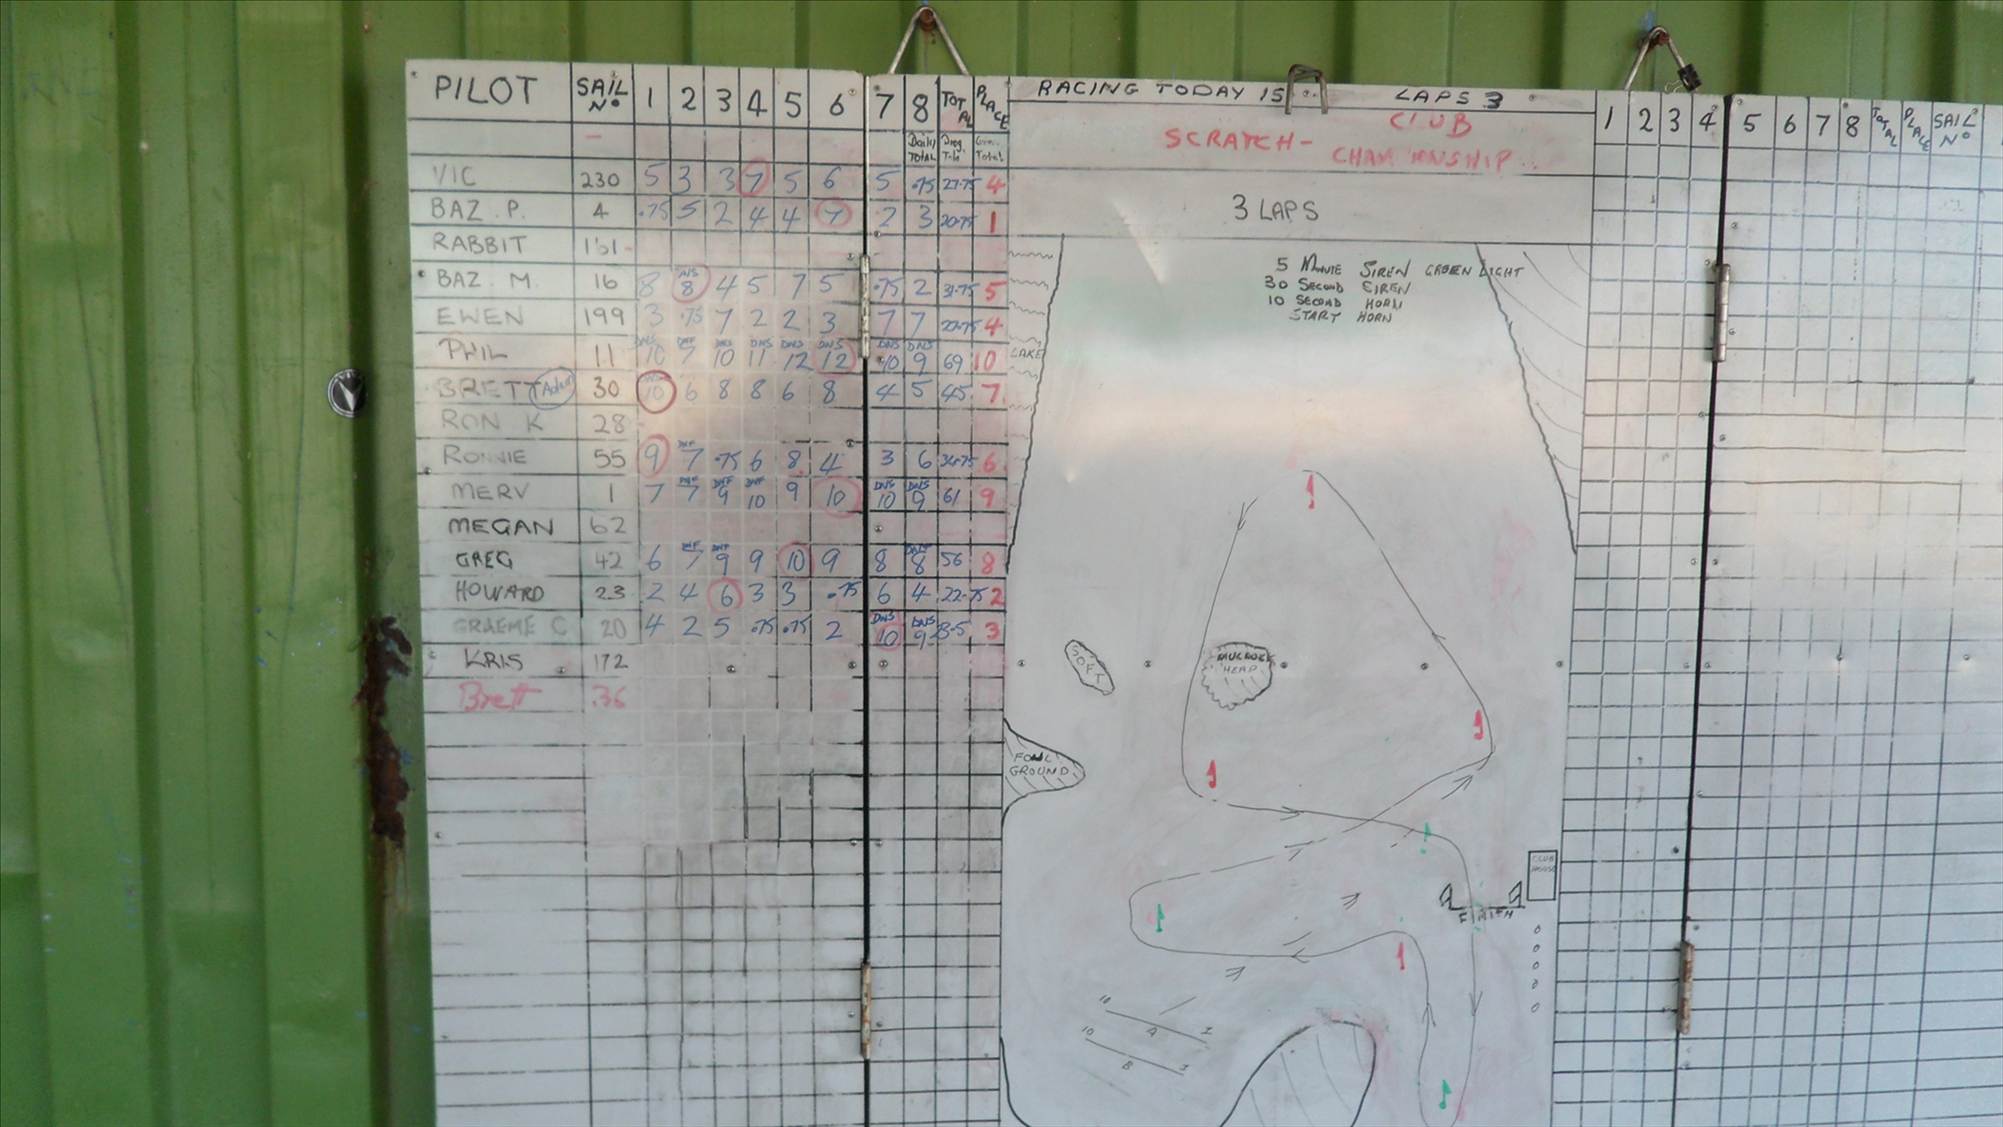 PILOT SAIL Nº 1 2 3 4 5 6 7 8 TOTAL PLACE
Daily TOTAL
VIC 230 5 3 3 7 5 6 5 .75 27.75 4
BAZ. P. 4 .75 5 2 4 4 7 2 3 20.75 1
RABBIT 161
BAZ. M. 16 8 DNS 8 4 5 7 5 .75 2 31.75 5
EWEN 199 3 .75 7 2 2 3 7 7 4
PHIL 11 DNS 10 DNF 7 DNS 10 DNS 11 DNS 12 DNS 12 DNS 10 DNS 9 69 10
BRETT 30 10 6 8 8 6 8 4 5 45. 7
RON K 28
RONNIE 55 9 DNF 7 .75 6 8 4 3 6 34.75 6
MERV 1 7 DNF 7 DNF 9 DNF 10 9 10 DNS 10 DNS 9 61 9
MEGAN 62
GREG 42 6 DNF 7 DNF 9 9 10 9 8 DNF 8 56 8
HOWARD 23 2 4 6 3 3 .75 6 4 22.75 2
GRAEME C 20 4 2 5 .75 .75 2 DNS 10 DNS 9 3
KRIS 172
Brett 36
RACING TODAY IS LAPS 3
SCRATCH - CLUB
CHAMPIONSHIP
3 LAPS
5 Minute SIREN GREEN LIGHT
30 SECOND SIREN
10 SECOND HORN
START HORN
LAKE
SOFT
MULLOCK
HEAP
FOUL
GROUND
CLUB
HOUSE
FINISH
10 A 1
10 B 1
1 2 3 4 5 6 7 8 TOTAL PLACE SAIL Nº